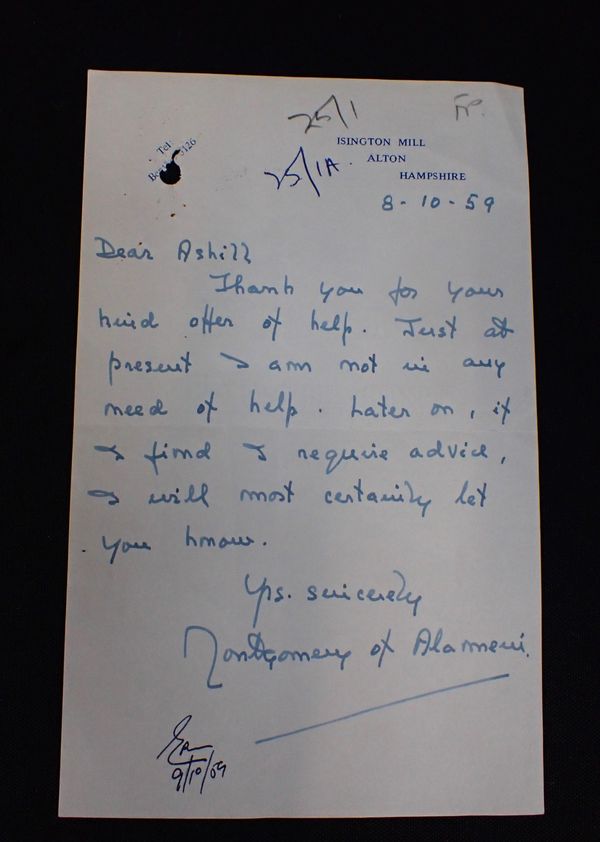 25/1
Tel:
3126
ISINGTON MILL
ALTON
HAMPSHIRE
25/1A.
8-10-59
Dear Ashill
Thank you for your
kind offer of help. Just at
present I am not in any
need of help. Later on, if
I find I require advice,
I will most certainly let
you know.
Yrs. sincerely
Montgomery of Alamein.
9/10/59